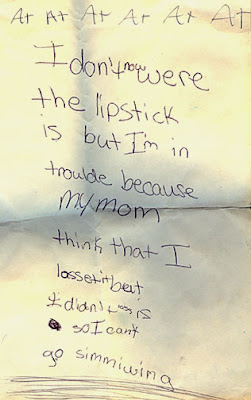 A+ A+ A+ A+ A+ A+
I don't now were
the lipstick
is but I'm in
troulde because
my mom
think that I
losset it but
I didn't is
so I can't
go simmiwing